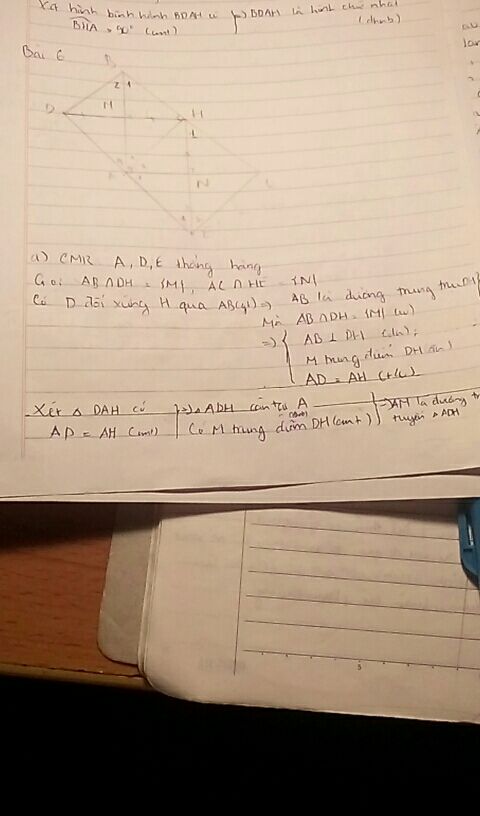 Xét hình bình hành BDAH có } => BDAH là hình chữ nhật
BHA = 90° (cmt) (dhnb)
Bài 6
B
2 1
D M H
1
N
a) CMR A, D, E thẳng hàng
Gọi AB ∩ DH = {M}, AC ∩ HE = {N}
Có D đối xứng H qua AB (gt) => AB là đường trung trực DH
Mà AB ∩ DH = {M}
=> { AB ⊥ DH
M trung điểm DH
AD = AH (t/c)
Xét △ DAH có } => △ ADH cân tại A } => AM là đường
AD = AH (cmt) Có M trung điểm DH (cmt) tuyến △ ADH